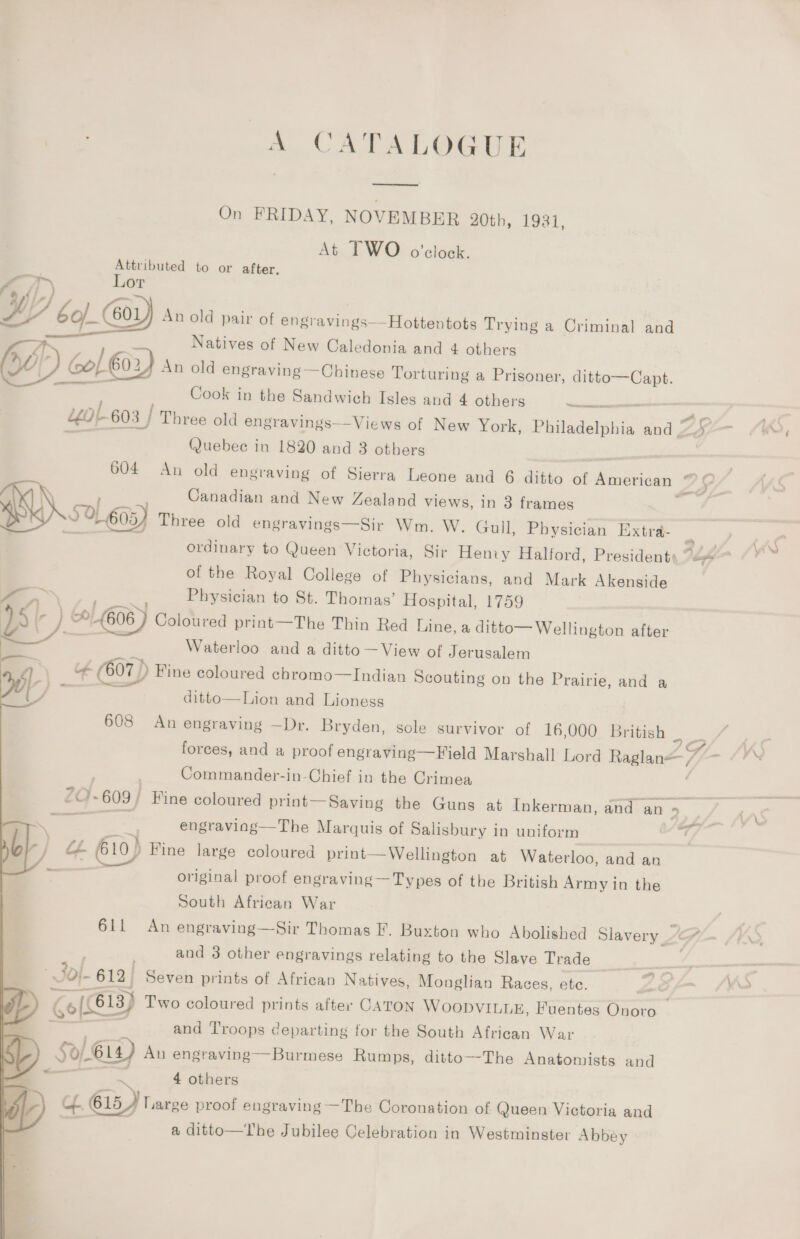 A CATALOGUE
On FRIDAY, NOVEMBER 20th, 1931,
At TWO o'clock.
Attributed to or after.
Lot
60/- 601 An old pair of engravings—Hottentots Trying a Criminal and
Natives of New Caledonia and 4 others
60/- 602 An old engraving—Chinese Torturing a Prisoner, ditto—Capt.
Cook in the Sandwich Isles and 4 others
40/- 603 Three old engravings—Views of New York, Philadelphia and
Quebec in 1820 and 3 others
604 An old engraving of Sierra Leone and 6 ditto of American
Canadian and New Zealand views, in 3 frames
50/- 605 Three old engravings—Sir Wm. W. Gull, Physician Extra-
ordinary to Queen Victoria, Sir Henry Halford, President
of the Royal College of Physicians, and Mark Akenside
Physician to St. Thomas' Hospital, 1759
606 Coloured print—The Thin Red Line, a ditto—Wellington after
Waterloo and a ditto—View of Jerusalem
607 Fine coloured chromo—Indian Scouting on the Prairie, and a
ditto—Lion and Lioness
608 An engraving—Dr. Bryden, sole survivor of 16,000 British
forces, and a proof engraving—Field Marshall Lord Raglan
Commander-in-Chief in the Crimea
609 Fine coloured print—Saving the Guns at Inkerman, and an
engraving—The Marquis of Salisbury in uniform
610 Fine large coloured print—Wellington at Waterloo, and an
original proof engraving—Types of the British Army in the
South African War
611 An engraving—Sir Thomas F. Buxton who Abolished Slavery
and 3 other engravings relating to the Slave Trade
612 Seven prints of African Natives, Monglian Races, etc.
613 Two coloured prints after CATON WOODVILLE, Fuentes Onoro
and Troops departing for the South African War
50/- 614 An engraving—Burmese Rumps, ditto—The Anatomists and
4 others
615 Large proof engraving—The Coronation of Queen Victoria and
a ditto—The Jubilee Celebration in Westminster Abbey